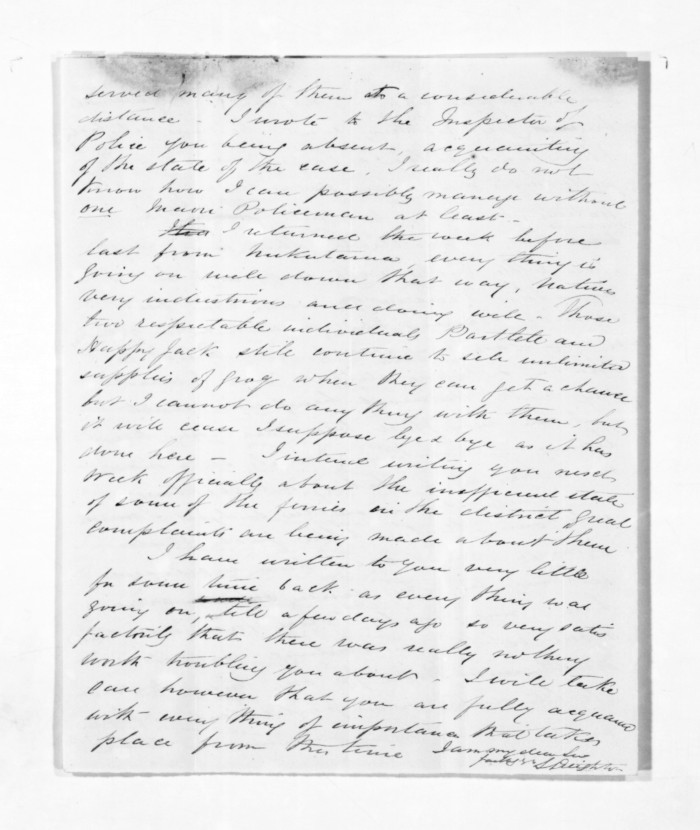 served many of them to a considerable
distance - I wrote to the Inspector of
Police you being absent, acquainting
of the state of the case, I really do not
know how I can possibly manage without
one Maori Policeman at least -
I returned the week before
last from Nukutaurua, every thing is
going on well down that way, natives
very industrious and doing well - Those
two respectable individuals Bartlett and
Happy Jack still continue to sell unlimited
supplies of grog when they can get a chance
but I cannot do any thing with them, but
it will cease I suppose bye & bye as it has
done here - I intend writing you next
week officially about the inefficient state
of some of the ferries in the district great
complaints are being made about them
I have written to you very little
for some time back as every thing was
going on, till a few days ago so very satis
factorily that there was really nothing
worth troubling you about - I will take
care however that you are fully acquaint
with every thing of importance that takes
place from this time I am my dear Sir